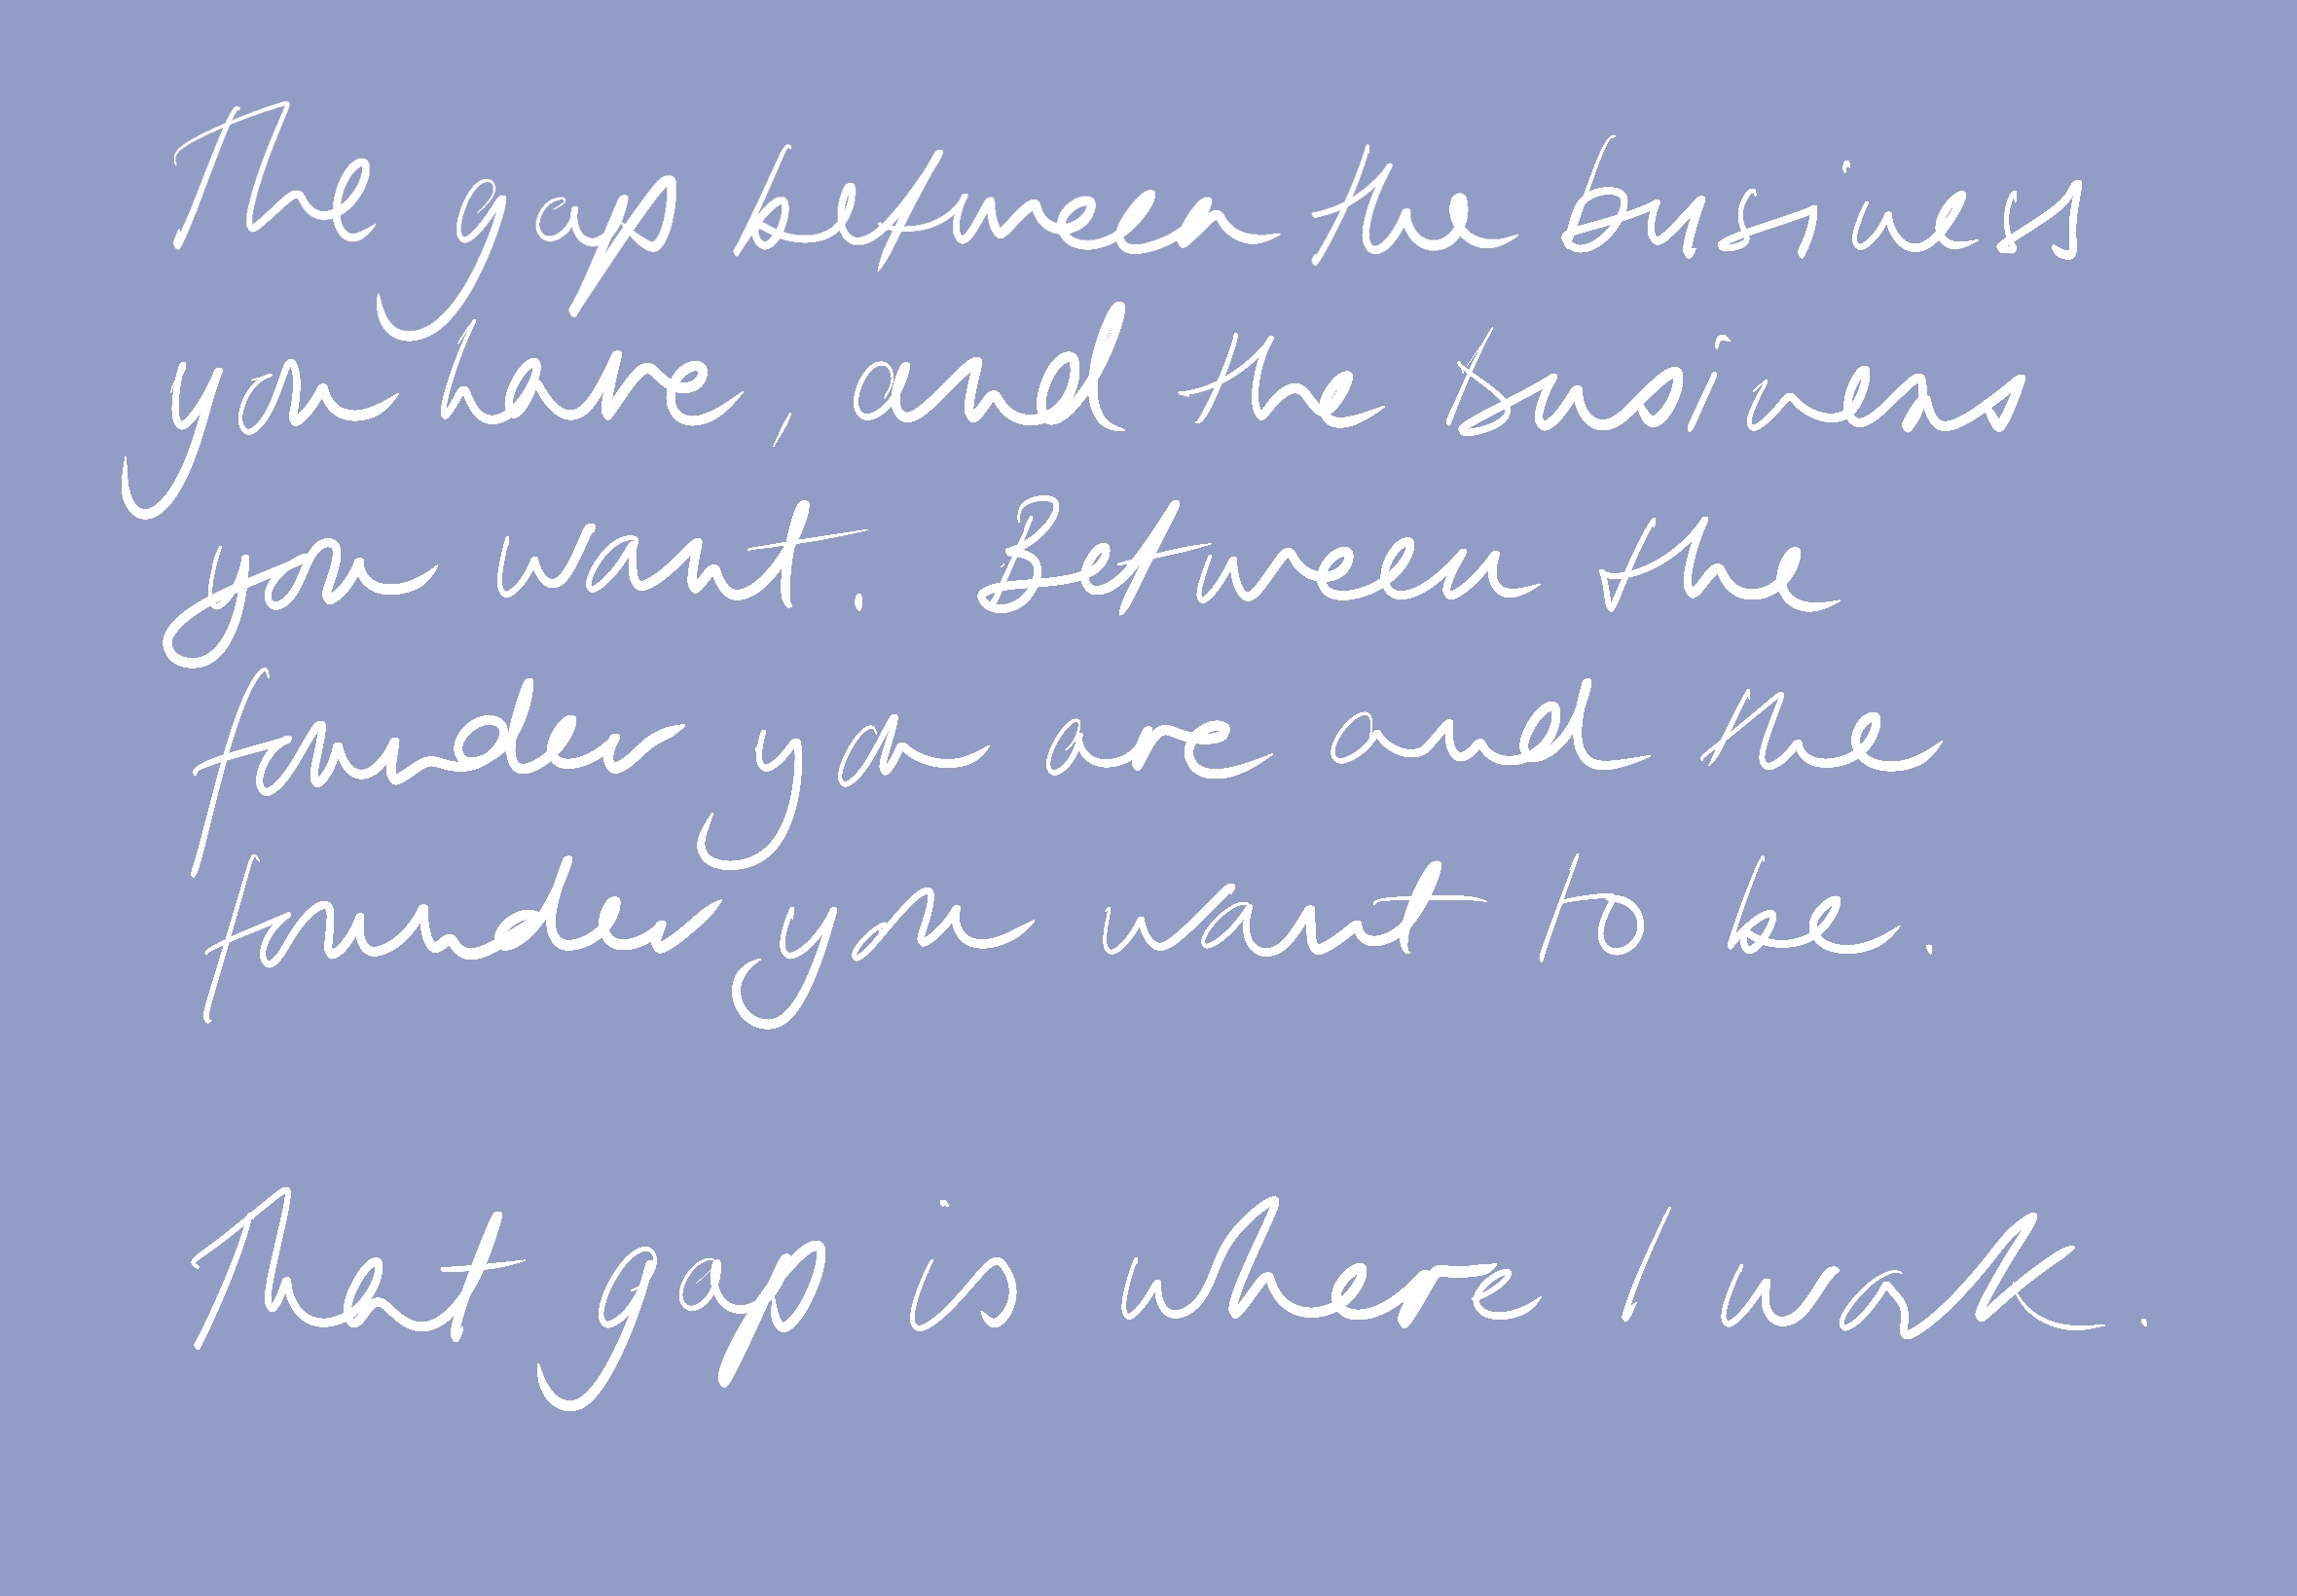 The gap between the business
you have, and the business
you want. Between the
founder you are and the
founder you want to be.
That gap is where I walk.